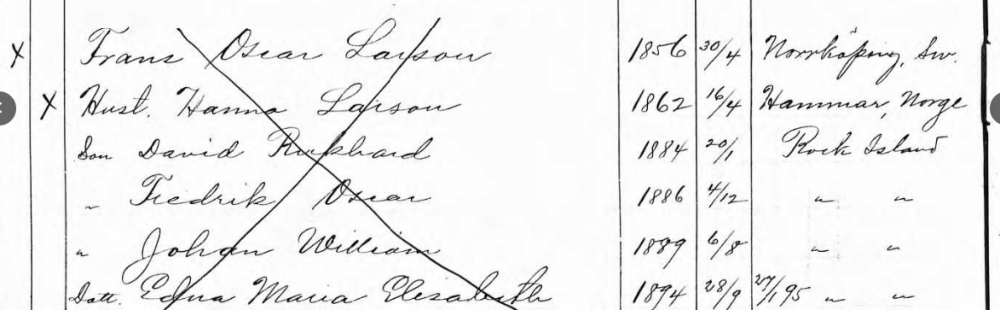 x Frans Oscar Larson 1856 30/4 Norrköping, Sw.
x Hust. Hanna Larson 1862 16/4 Hammar, Norge
Son David Richard 1884 20/1 Rock Island
" Fredrik Oscar 1886 4/12 " "
" Johan William 1889 6/8 " "
Dott. Edna Maria Elisabeth 1894 28/9 27/1 95 " "